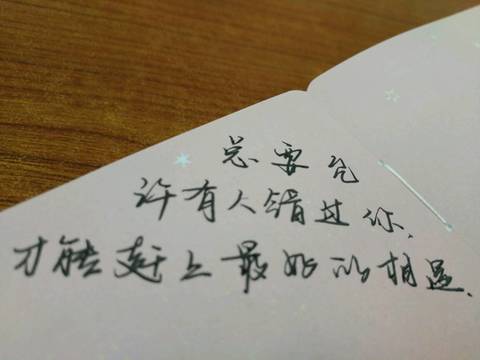 总要允
许有人错过你,
才能赶上最好的相遇.